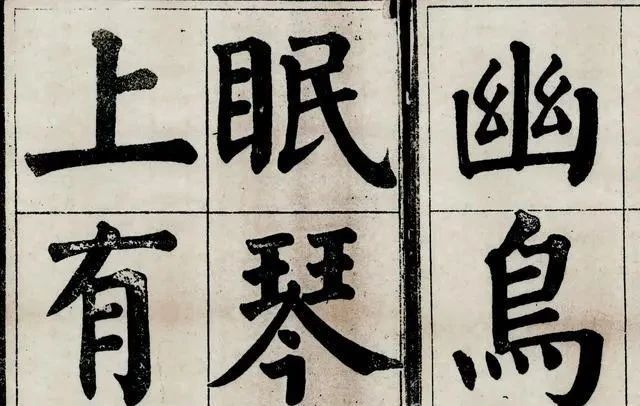 幽鳥
眠琴
上有